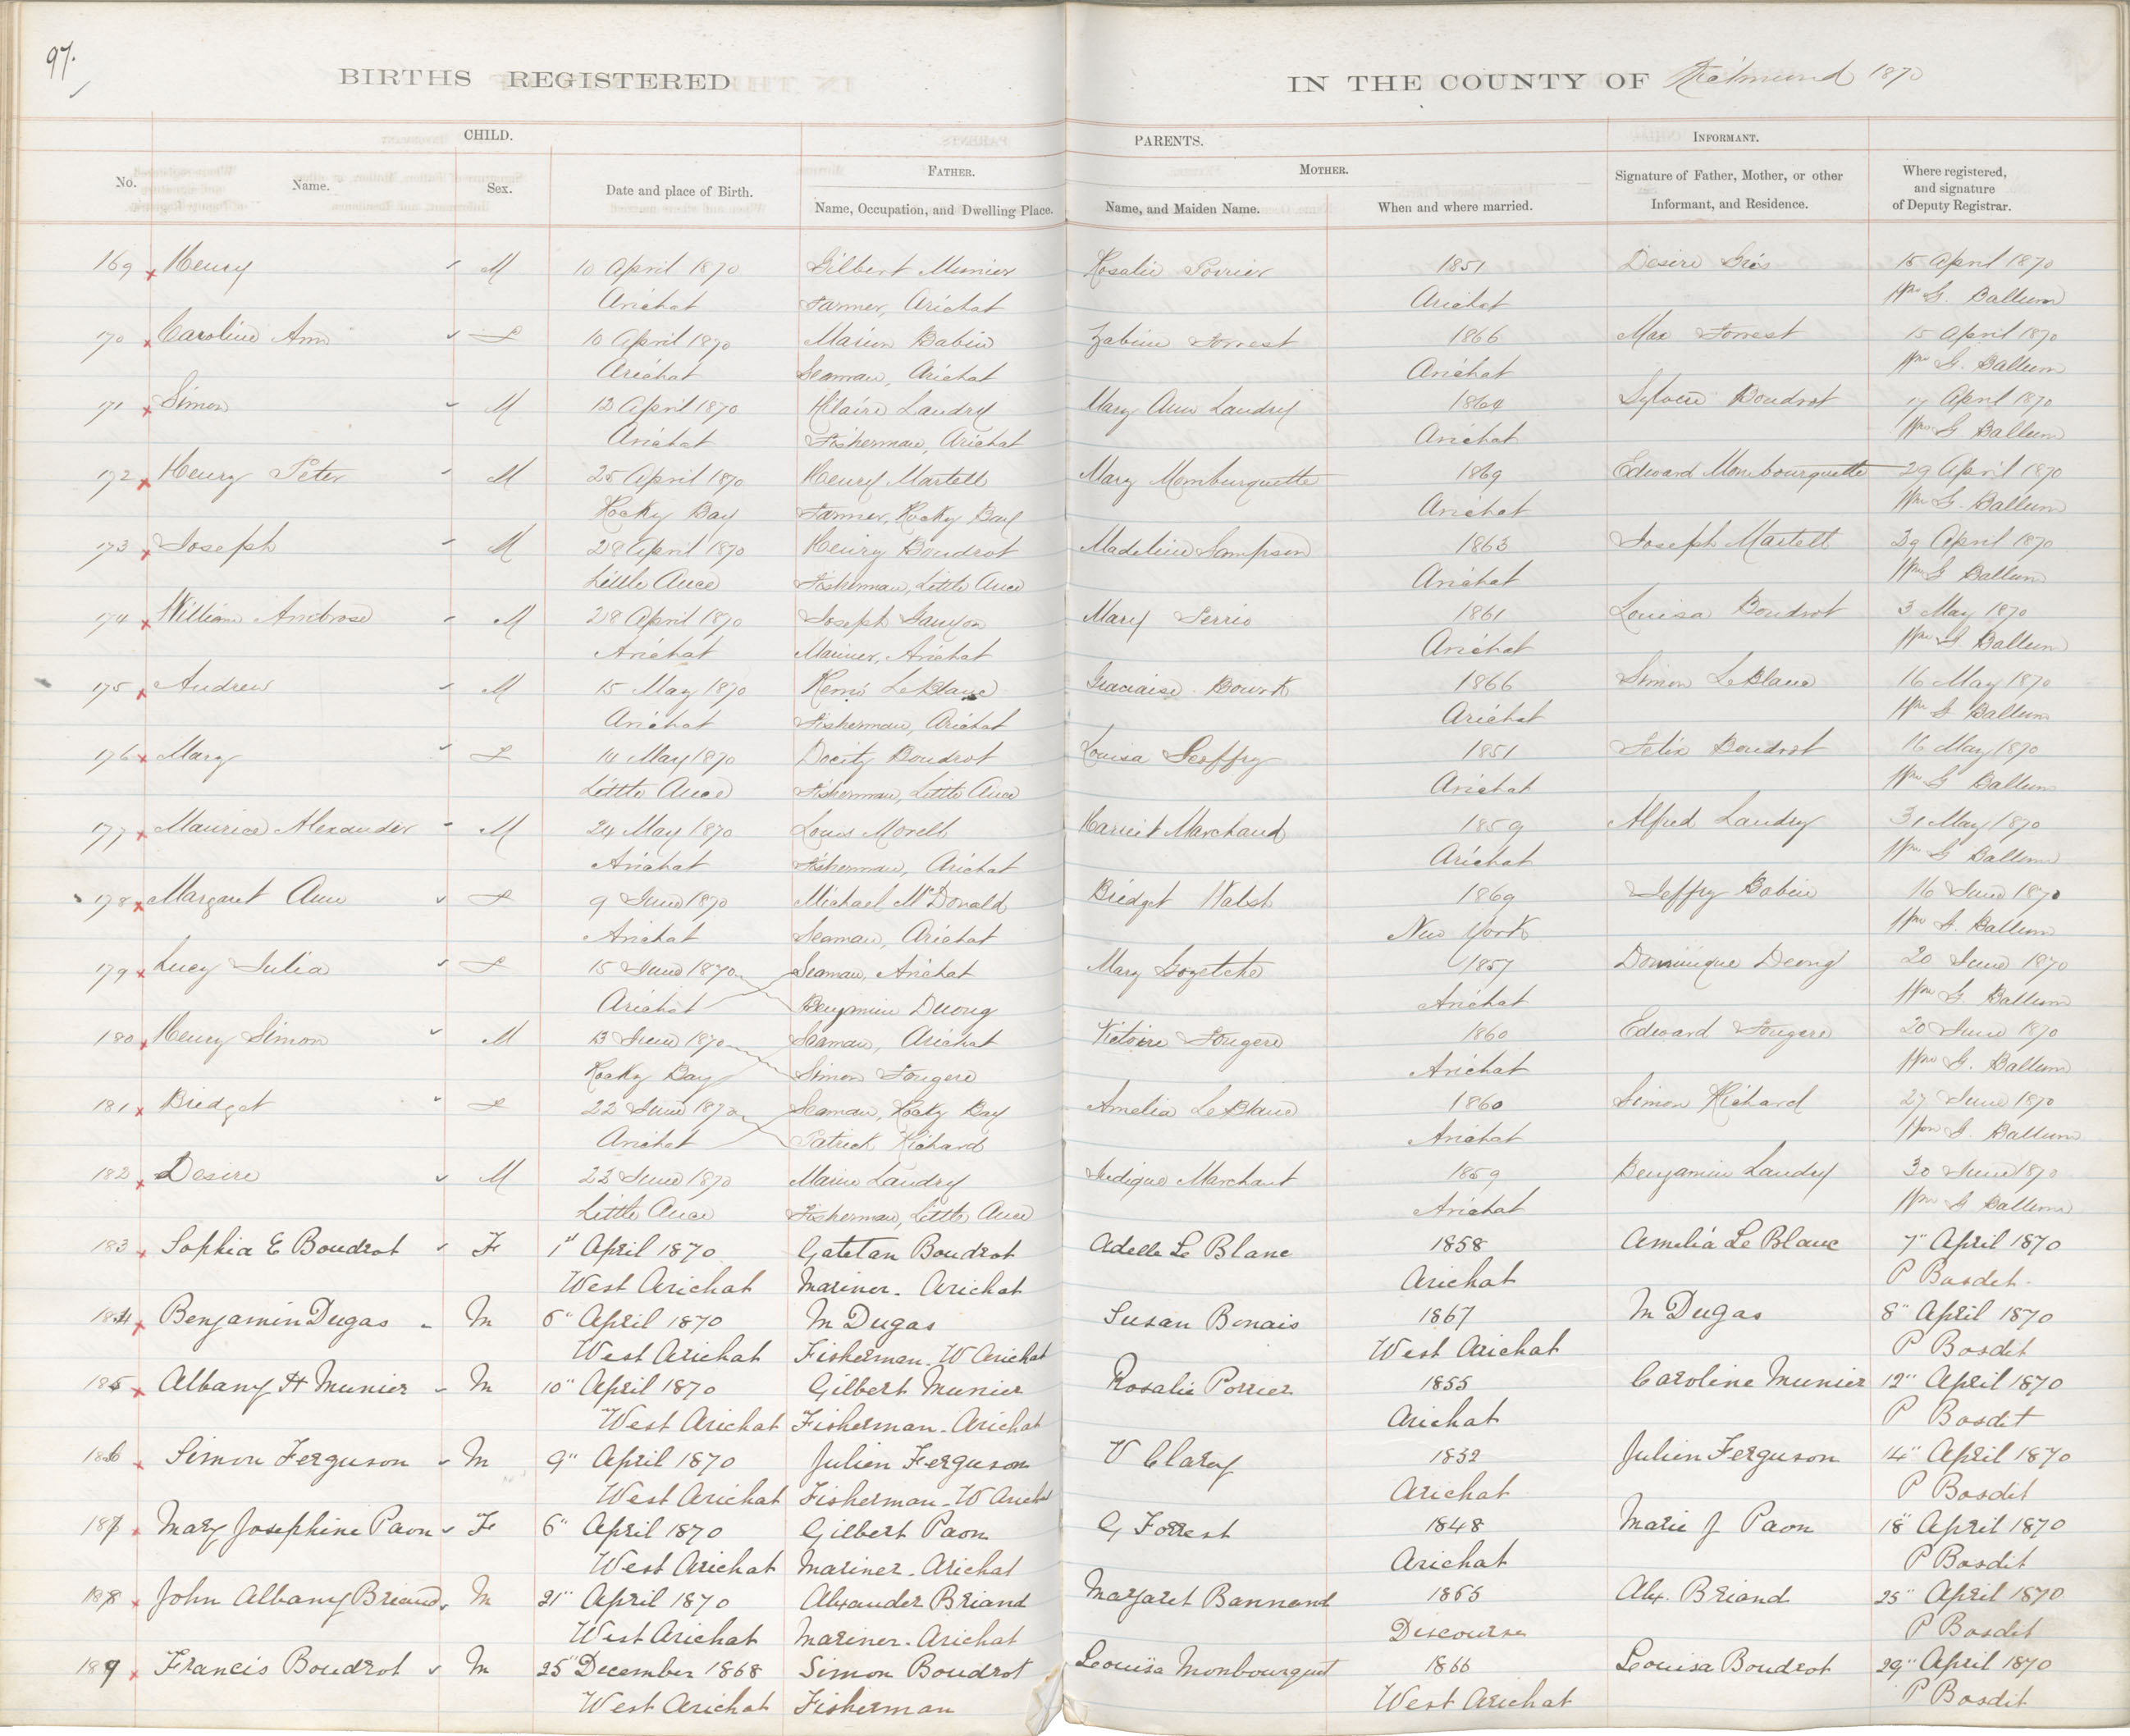 97.
BIRTHS REGISTERED
IN THE COUNTY OF Richmond 1870
CHILD.
PARENTS.
INFORMANT.
No.
Name.
Sex.
Date and place of Birth.
FATHER.
Name, Occupation, and Dwelling Place.
MOTHER.
Name, and Maiden Name.
When and where married.
Signature of Father, Mother, or other Informant, and Residence.
Where registered, and signature of Deputy Registrar.
169 Henry M 10 April 1870 Gilbert Munier Rosalie Poirier 1851 Desire Gros 15 April 1870
Arichat Farmer, Arichat Arichat Wm G. Ballum
170 Caroline Ann F 10 April 1870 Marien Babin Zabine Forrest 1866 Max Forrest 15 April 1870
Arichat Seaman, Arichat Arichat Wm G. Ballum
171 Simon M 12 April 1870 Hilaire Landry Mary Ann Landry 1864 Sylvere Boudrot 17 April 1870
Arichat Fisherman, Arichat Arichat Wm G. Ballum
172 Henry Peter M 25 April 1870 Henry Martell Mary Momburquette 1869 Edward Monbourquette 29 April 1870
Rocky Bay Farmer, Rocky Bay Arichat Wm G. Ballum
173 Joseph M 28 April 1870 Henry Boudrot Madeline Sampson 1863 Joseph Martell 29 April 1870
Little Ance Fisherman, Little Ance Arichat Wm G Ballum
174 William Ambrose M 28 April 1870 Joseph Mary Perrio 1861 Louisa Boudrot 3 May 1870
Arichat Mariner, Arichat Arichat Wm G. Ballum
175 Andrew M 15 May 1870 Remi LeBlanc Bourk 1866 Simon LeBlanc 16 May 1870
Arichat Fisherman, Arichat Arichat Wm G Ballum
176 Mary F 14 May 1870 Docity Boudrot Louisa Geoffry 1851 Felix Boudrot 16 May 1870
Little Ance Fisherman, Little Ance Arichat Wm G Ballum
177 Maurice Alexander M 24 May 1870 Louis Morell Harriet Marchand 1859 Alfred Landry 31 May 1870
Arichat Fisherman, Arichat Arichat Wm G Ballum
178 Margaret Ann F 9 June 1870 Michael McDonald Bridget Walsh 1869 Jeffry Babin 16 June 1870
Arichat Seaman, Arichat New York Wm G. Ballum
179 Lucy Julia F 15 June 1870 Seaman, Arichat Mary Gozetche 1857 Dominique Deong 20 June 1870
Arichat Benjamin Duong Arichat Wm G. Ballum
180 Henry Simon M 13 June 1870 Seaman, Arichat Victoire Fougere 1860 Edward Fougere 20 June 1870
Rocky Bay Simon Fougere Arichat Wm G. Ballum
181 Bridget F 22 June 1870 Seaman, Rocky Bay Amelia LeBlanc 1860 Simon Richard 27 June 1870
Arichat Patrick Richard Arichat Wm G. Ballum
182 Desire M 22 June 1870 Marin Landry Marchant 1859 Benjamin Landry 30 June 1870
Little Ance Fisherman, Little Ance Arichat Wm G Ballum
183 Sophia E Boudrot F 1st April 1870 Gatetan Boudrot Adelle Le Blanc 1858 Amelia Le Blanc 7" April 1870
West Arichat Mariner. Arichat Arichat P Bosdet.
184 Benjamin Dugas M 6" April 1870 M Dugas Susan Bonais 1867 M Dugas 8" April 1870
West Arichat Fisherman. W Arichat West Arichat P Bosdit
185 Albany H Munier M 10" April 1870 Gilbert Munier Rosalie Porrier 1855 Caroline Munier 12" April 1870
West Arichat Fisherman. Arichat Arichat P Bosdet
186 Simon Ferguson M 9" April 1870 Julien Ferguson V Clary 1852 Julien Ferguson 14" April 1870
West Arichat Fisherman. W Arichat Arichat P Bosdit
187 Mary Josephine Paon F 6" April 1870 Gilbert Paon G Forrest 1848 Marie J Paon 18" April 1870
West Arichat Mariner. Arichat Arichat P Bosdit
188 John Albany Briand M 21" April 1870 Alexander Briand Margaret Bannend 1865 Alex. Briand 25" April 1870
West Arichat Mariner. Arichat Discourse P Bosdet
189 Francis Boudrot M 25" December 1868 Simon Boudrot Leouisa Monbourquet 1866 Louisa Boudrot 29" April 1870
West Arichat Fisherman West Arichat P Bosdit